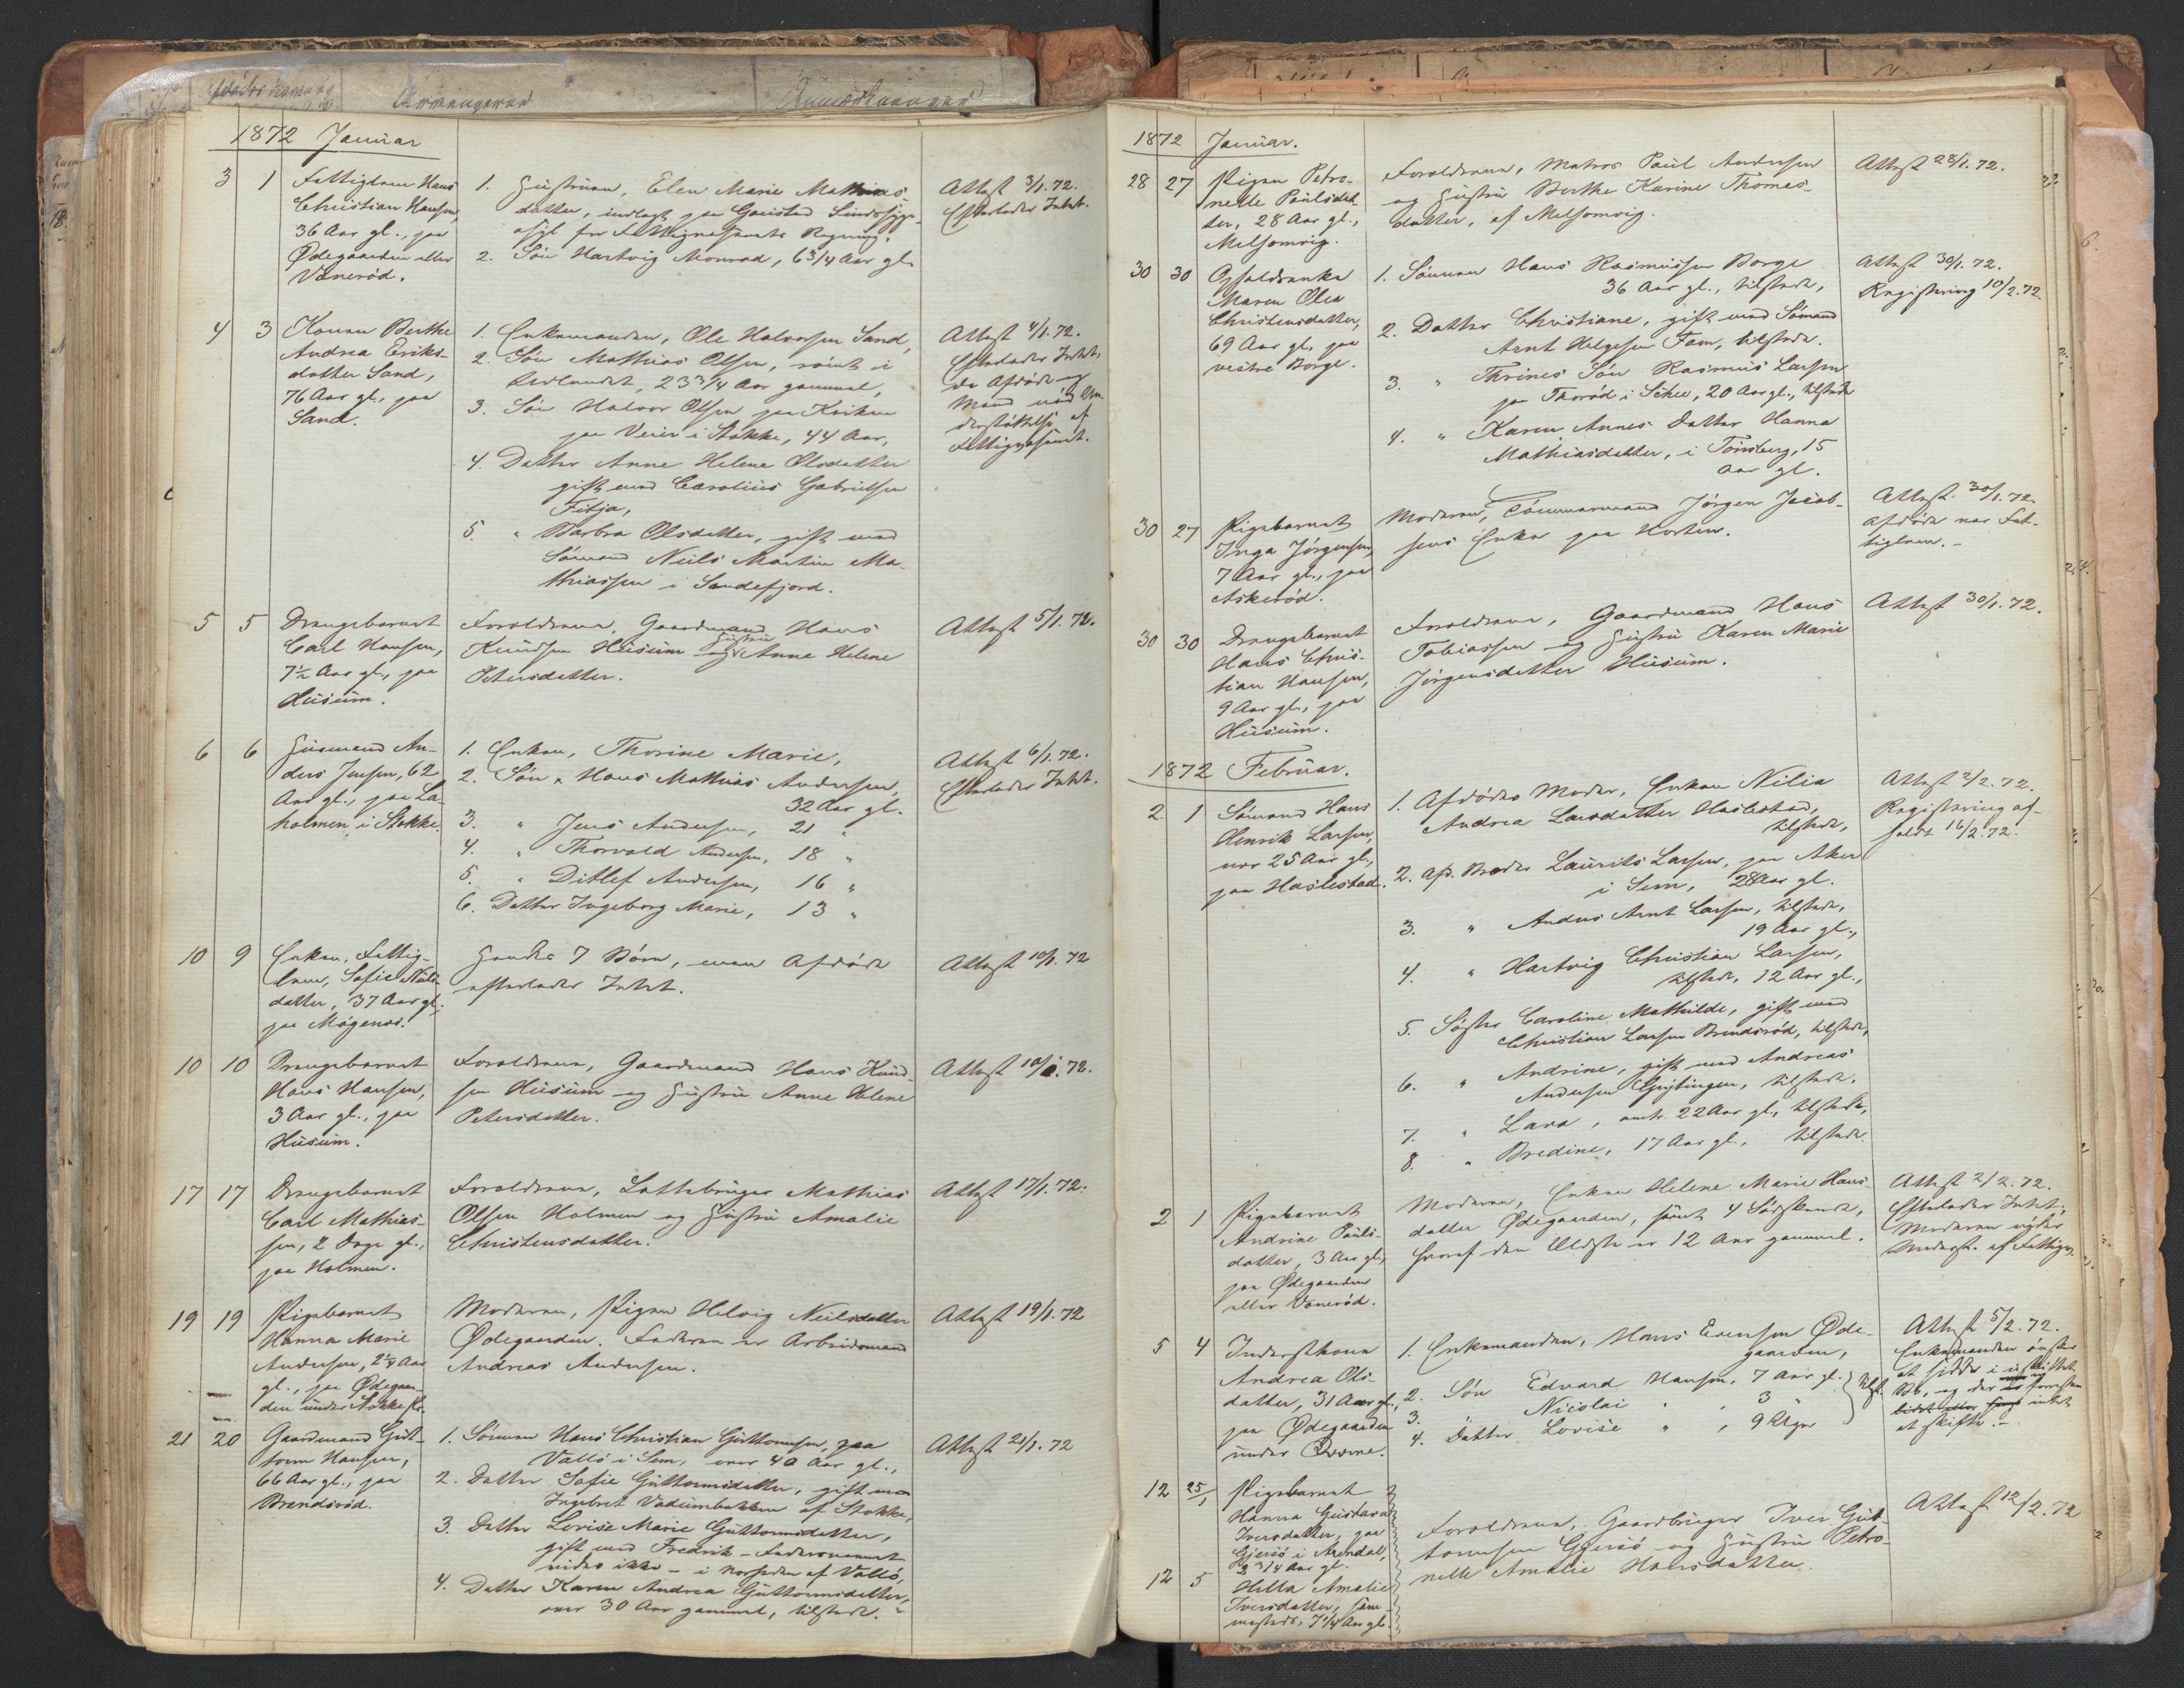 1872 Januar
3 1 Fattiglem Hans
Christian Hansen,
36 Aar gl., paa
Ødegaarden eller
Vanerød.
1. Hustruen, Elen Marie Mathias-
datter, indlagt paa Gaustad Sindssyge-
asyl for Fattigvæsenets Regning.
2. Søn Hartvig Monrad, 6 3/4 Aar gl.
Attest 3/1.72.
Efterlader Intet.
4 3 Konen Berthe
Andrea Eriks-
datter Sand,
76 Aar gl., paa
Sand.
1. Enkemanden, Ole Halvorsen Sand,
2. Søn Mathias Olsen, rømt i
Udlandet, 23 3/4 Aar gammel,
3. Søn Halvor Olsen paa
paa Veier i Stokke, 44 Aar,
4. Datter Anne Helene Olsdatter
gift med Carolius Gabrielsen
Fitja,
5. " Barbra Olsdatter, gift med
Sømand Neils Martin Ma-
thiassen i Sandefjord.
Attest 4/1.72.
Efterlader Intet,
da Afdøde og
Mand nød Un-
derstøttelse af
Fattigvæsenet.
5 5 Drengebarnet
Carl Hansen,
7½ Aar gl., paa
Husum.
Forældrene, Gaardmand Hans
Knudsen Husum og Hustru Anne Helene
Petersdatter.
Attest 5/1.72.
6 6 Huusmand An-
ders Jensen, 62
Aar gl., paa La-
holmen i Stokke.
1. Enken, Thorine Marie,
2. Søn Hans Mathias Andersen,
32 Aar gl.
3. " Jens Andersen, 21 "
4. " Thorvald Andersen, 18 "
5. " Ditlef Andersen, 16 "
6. Datter Ingeborg Marie, 13 "
Attest 6/1.72.
Efterlader Intet.
10 9 Enken, Fattig-
lem, Sofie Neils-
datter, 37 Aar gl.,
paa Møgenes.
Havde 7 Børn, men Afdøde
efterlader Intet.
Attest 10/1.72
10 10 Drengebarnet
Hans Hansen,
3 Aar gl., paa
Husum.
Forældrene, Gaardmand Hans Knud-
sen Husum og Hustru Anne Helene
Petersdatter.
Attest 10/1.72.
17 17 Drengebarnet
Carl Mathias-
sen, 2 Dage gl.,
paa Holmen.
Forældrene, Lottebruger Mathias
Olsen Holmen og Hustru Amalie
Christensdatter.
Attest 17/1.72.
19 19 Pigebarnet
Hanna Marie
Andersen, 2¼ Aar
gl., paa Ødegaar-
den under Stokke
Moderen, Pigen Helvig Neilsdatter
Ødegaarden. Faderen er Arbeidsmand
Andreas Andersen.
Attest 19/1.72
21 20 Gaardmand Gut-
torm Hansen,
66 Aar gl., paa
Brendsrød.
1. Sønnen Hans Christian Guttormsen, paa
Vallø i Sem, over 40 Aar gl.,
2. Datter Sofie Guttormsdatter, gift med
Ingebret Vadumbakken af Stokke,
3. Datter Lovise Marie Guttormsdatter,
gift med Fredrik - Fadernavnet
vides ikke - i Nærheden af Vallø,
4. Datter Karen Andrea Guttormsdatter,
over 30 Aar gammel, tilstede.
Attest 21/1.72
1872 Januar.
28 27 Pigen Petro-
nelle Paulsdat-
ter, 28 Aar gl.,
Melsomvig.
Forældrene, Matros Paul Andersen
og Hustru Berthe Karine Thomes-
datter, af Melsomvig.
Attest 28/1.72.
30 30 Opholdsenke
Maren Olea
Christensdatter,
69 Aar gl., paa
vestre Borge.
1. Sønnen Hans Rasmussen Borge
36 Aar gl., tilstede,
2. Datter Christiane, gift med Sømand
Arnt Helgesen Fom, tilstede.
3. " Thrines Søn Rasmus Larsen
paa Thorød i Scheé, 20 Aar gl., tilstede
4. " Karen Annes Datter Hanna
Mathiasdatter, i Tønsberg, 15
Aar gl.
Attest 30/1.72.
Registrering 10/2.72.
30 27 Pigebarnet
Inga Jørgensen,
7 Aar gl., paa
Askerød.
Moderen, Tømmermand Jørgen Jacob-
sens Enke paa Horten.
Attest 30/1.72.
Afdøde var Fat-
tiglem. -
30 30 Drengebarnet
Hans Chris-
tian Hansen,
9 Aar gl., paa
Husum.
Forældrene, Gaardmand Hans
Tobiassen og Hustru Karen Marie
Jørgensdatter Husum.
Attest 30/1.72.
1872 Februar.
2 1 Sømand Hans
Henrik Larsen,
over 25 Aar gl.,
paa Haslestad.
1. Afdødes Moder, Enken Nilia
Andrea Larsdatter Haslestad,
tilstede,
2. Afd. Broder Laurits Larsen, paa Aker
i Sem, 28 Aar gl.
3. " Andus Arnt Larsen, tilstede,
19 Aar gl.,
4. " Hartvig Christian Larsen,
tilstede, 12 Aar gl.,
5. Søster Caroline Mathilde, gift med
Christian Larsen Brendsrød, tilstede,
6. " Andrine, gift med Andreas
Andersen Grytingen, tilstede.
7. " Lava, omtr. 22 Aar gl., tilstede,
8. " Bredine, 17 Aar gl., tilstede.
Attest 2/2.72.
Registrering af-
holdt 16/2.72.
2 1 Pigebarnet
Andrine Pauls-
datter, 3 Aar gl.,
paa Ødegaarden
eller Vanerød.
Moderen, Enken Helene Marie Hans-
datter Ødegaarden, samt 4 Sødskende,
hvoraf den Ældste er 12 Aar gammel.
Attest 2/2.72.
Efterlader Intet,
Moderen nyder
Underst. af Fattigv.
5 4 Inderstkone
Andrea Ols-
datter, 31 Aar gl.,
paa Ødegaarden
under
1. Enkemanden, Hans Evensen Øde-
gaarden,
2. Søn Edvard Hansen, 7 Aar gl.
3. Nicolai " , 3 "
4. Datter Lovise " , 9 Uger
tilst.
Attest 5/2.72.
Enkemanden ønsker
at sidde i uskiftet
Bo, og der er forresten
intet
at skifte. -
12 25/1 Pigebarnet
Hanna Gustava
Iversdatter, paa
Gjersø i Arendal,
2 3/4 Aar gl.
12 5 Hella Amalie
Iversdatter, sam-
mesteds, 7 1/4 Aar gl.
Forældrene, Gaardbruger Iver Gut-
tormsen Gjersø og Hustru Petro-
nelle Amalie Hansdatter.
Attest 12/2.72